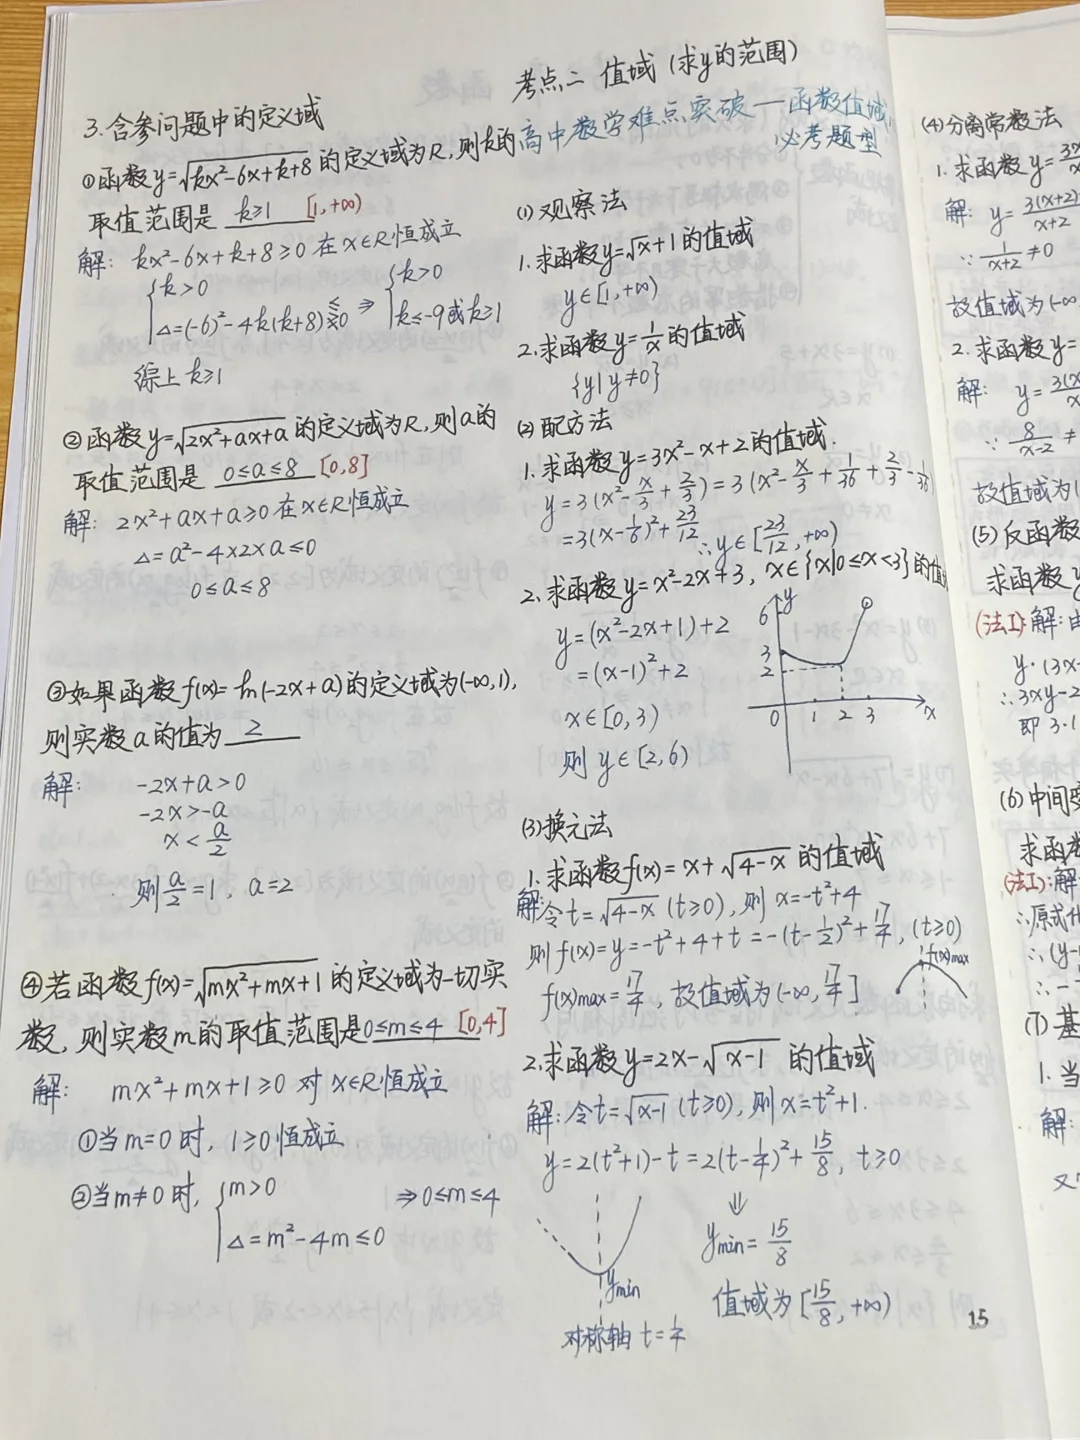 3.含参问题中的定义域
①函数y=√(kx²-6x+k+8)的定义域为R,则k的
取值范围是 k≥1 [1,+∞)
解: kx²-6x+k+8≥0在x∈R恒成立
{k>0 ⇒ {k>0
Δ=(-6)²-4k(k+8)≤0 k≤-9或k≥1
综上k≥1
②函数y=√(2x²+ax+a)的定义域为R,则a的
取值范围是 0≤a≤8 [0,8]
解: 2x²+ax+a≥0在x∈R恒成立
Δ=a²-4×2×a≤0
0≤a≤8
③如果函数f(x)=ln(-2x+a)的定义域为(-∞,1),
则实数a的值为 2
解: -2x+a>0
-2x>-a
x<a/2
∵则a/2=1, a=2
④若函数f(x)=√(mx²+mx+1)的定义域为一切实
数,则实数m的取值范围是0≤m≤4 [0,4]
解: mx²+mx+1≥0对x∈R恒成立
①当m=0时, 1≥0恒成立
②当m≠0时, {m>0 ⇒0≤m≤4
Δ=m²-4m≤0
考点二 值域(求y的范围)
高中数学难点突破一函数值域
必考题型
(1)观察法
1.求函数y=√x+1的值域
y∈[1,+∞)
2.求函数y=1/x的值域
{y|y≠0}
(2)配方法
1.求函数y=3x²-x+2的值域.
y=3(x²-x/3+2/3)=3(x²-x/3+1/36+2/3-1/36)
=3(x-1/6)²+23/12 ∴y∈[23/12,+∞)
2.求函数y=x²-2x+3, x∈{x|0≤x<3}的值
y=(x²-2x+1)+2
=(x-1)²+2
x∈[0,3)
则y∈[2,6)
y
6
3
2
0 1 2 3 x
(3)换元法
1.求函数f(x)=x+√(4-x)的值域
解:令t=√(4-x)(t≥0),则x=-t²+4
则f(x)=y=-t²+4+t=-(t-1/2)²+17/4,(t≥0)
f(x)max=17/4,故值域为(-∞,17/4]
f(x)max
2.求函数y=2x-√(x-1)的值域
解:令t=√(x-1)(t≥0),则x=t²+1.
y=2(t²+1)-t=2(t-1/4)²+15/8, t≥0
⇓
ymin=15/8
ymin
值域为[15/8,+∞)
对称轴t=1/4
15
(4)分离常数法
1.求函数y=
解: y=3(x+2)/x+2
∵1/x+2≠0
故值域为(-∞
2.求函数y=
解: y=3(x
∵8/x-2≠
故值域为(
(5)反函数
求函数y
(法I):解:由
y·(3x-
∴3xy-2
即3·1
(6)中间变
求函数
(法I):解
∴原式化
∴(y-
∴-
(7)基
1.当
解:
又